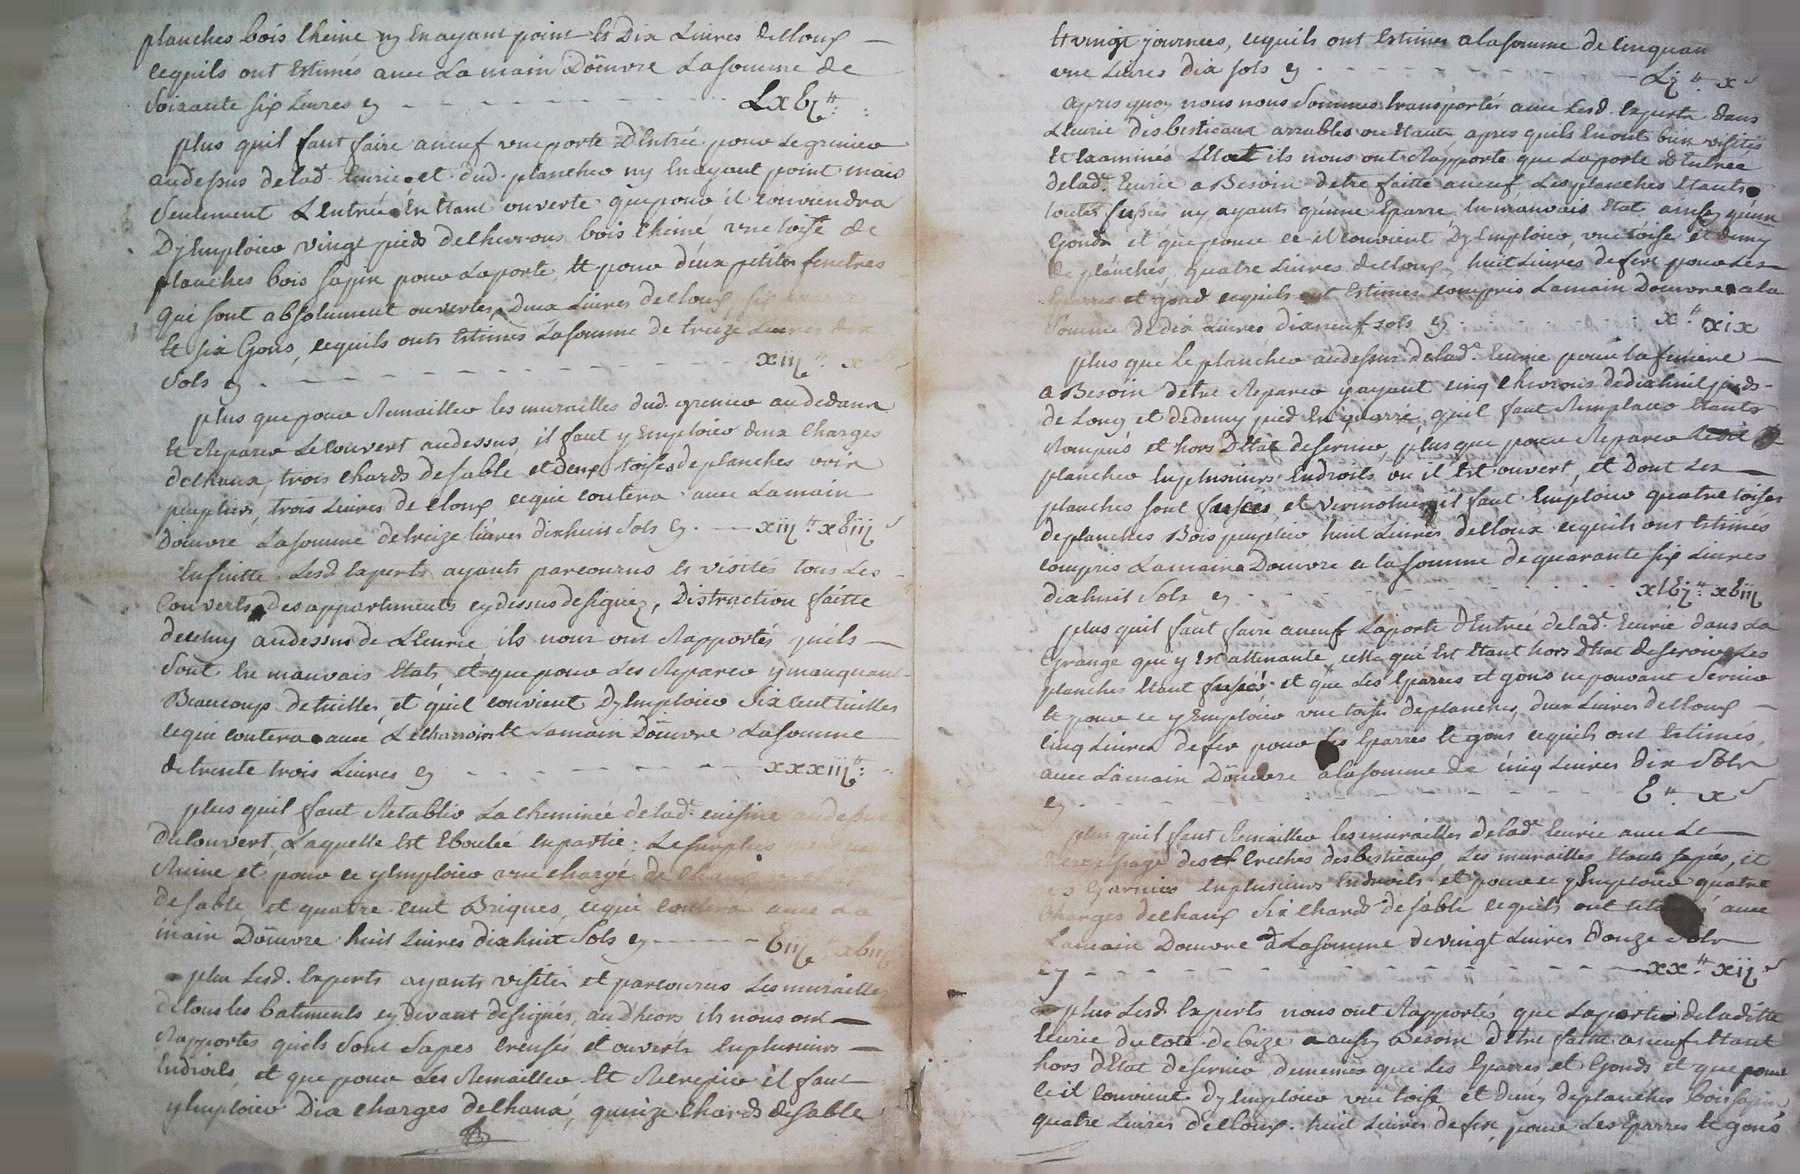 planches bois chêne ny En ayant point Et Dix Livres de clous
ce quils ont Estimés avec La main Dœuvre La somme de
Soixante six Livres cy - - - - - - Lxvj ₶ :
plus quil faut faire aneuf une porte D'Entrée pour Le grenier
audessus de lad. Ecurie et dud. plancher ny En ayant point mais
Seulement L'Entrée En Etant ouverte que pour il conviendra
Dy Employer vingt pieds de chevrons bois chêne une toise de
planches bois sapin pour La porte, Et pour deux petites fenetres
qui sont absolument ouvertes, deux Livres de clous, six
Et six Gons, ce quils onts Estimés La somme de treize Livres dix
Sols cy - - - - - - xiij ₶ x s
plus que pour Remailler les murailles dud. grenier au dedans
Et Reparer Le couvert audessus, il faut y Employer deux Charges
de chaux, trois chards de sable et deux toises de planches bois
peuplier, trois Livres de clous ce qui coutera avec La main
dœuvre La somme de treize livres dix huit Sols cy - - xiij ₶ xviij s
Ensuitte Lesd. Experts ayants parcourus Et visités tous Les
Couverts Des appartements cy dessus designez, Distraction faitte
de celuy audessus de L'Ecurie ils nous ont Rapportés quils
Sont En mauvais Etats et que pour Les Reparer y manquant
Beaucoup de tuilles et quil convient Dy Employer Six cent tuilles
ce qui coutera avec Et La main Dœuvre La somme
de trente trois Livres cy - - - - - xxxiij ₶ :
plus quil faut Retablir La cheminée de lad. cuisine audessus
du Couvert, Laquelle Est Eboulée En partie, Le surplus
Ruine et pour ce y Employer une charge de chaux
de sable, et quatre cent Briques, ce qui coutera avec La
main Dœuvre huit Livres dix huit Sols cy - - - viij ₶ xviij
plus Lesd. Experts ayants visités et parcourus Les murailles
de tous les batiments cy devant designés, au dhors ils nous ont
Rapportés quils Sont Sapes Creusés et ouverts En plusieurs
Endroits, et que pour Les Remailler Et Recrepir il faut
y Employer Dix Charges de chaux, quinze Chards de Sable
Et vingt journées, ce quils ont Estimés a la somme de cinquante
une Livres dix sols cy - - - - - - Lj ₶ x s
Apres quoy nous nous Sommes transportés avec Lesd. Experts dans
L'Ecurie des bestiaux arrables ou Etants apres quils En ont bien visités
Et Examinés L'Etat ils nous ont Rapporté que La porte d'Entrée
de lad. Ecurie a Besoin d'etre faitte aneuf Les planches Etants
toutes fusées ny ayants qu'une Eparre En mauvais Etat ainsy qu'un
Gond et que pour ce il convient Dy Employer, une toise et demy
de planches, quatre Livres de clous, huit Livres de fer pour Les
Eparres et gond ce quils ont Estimés compris La main Dœuvre a la
Somme de dix Livres dixneuf sols cy - - - - - x ₶ xix
plus que Le plancher audessus de lad. Ecurie pour La feniere
a Besoin d'etre Reparer y ayant cinq chevrons de dixhuit pieds
de Long et de demy pied En quarré, quil faut Remplacer Etants
Rompus et hors d'Etat de servir, plus que pour Reparer Ledit
plancher En plusieurs Endroits ou il Est ouvert, et Dont Les
planches sont fusées et vermolues il faut Employer quatre toises
de planches Bois peuplier, huit Livres de cloux ce quils ont Estimés
compris La main Dœuvre a la somme de quarante six Livres
dixhuit Sols cy - - - - - - xlvj ₶ xviij
plus quil faut faire aneuf La porte d'Entrée de lad. Ecurie dans La
Grange qui y Est attenante, celle qui Est Etant hors d'Etat de servir Les
planches Etant fusées et que Les Eparres et gons ne pouvant Servir
Et pour ce y Employer une toise de planches, deux Livres de clous
cinq Livres de fer pour les Eparres Et gons ce quils ont Estimés
avec La main Dœuvre a la somme de cinq Livres dix Sols
cy - - - - - - V ₶ x s
plus quil faut Remailler les murailles de lad. Ecurie avec Le
des Creches des bestiaux, Les murailles Etants sapées, et
En plusieurs Endroits et pour ce y Employer quatre
Charges de chaux Six Chards de sable ce quils ont Estimés avec
La main Dœuvre a La somme de vingt Livres douze Sols
cy - - - - - - xx ₶ xij s
plus Lesd. Experts nous ont Rapportés que La porte de laditte
Ecurie du coté de bize a aussy Besoin d'Etre faitte aneuf Etant
hors d'Etat de servir de memes que Les Eparres et Gonds et que pour
ce il Convient Dy Employer une toise et demy de planches bois sapin
quatre Livres de clous, huit Livres de fer, pour Les Eparres Et gons